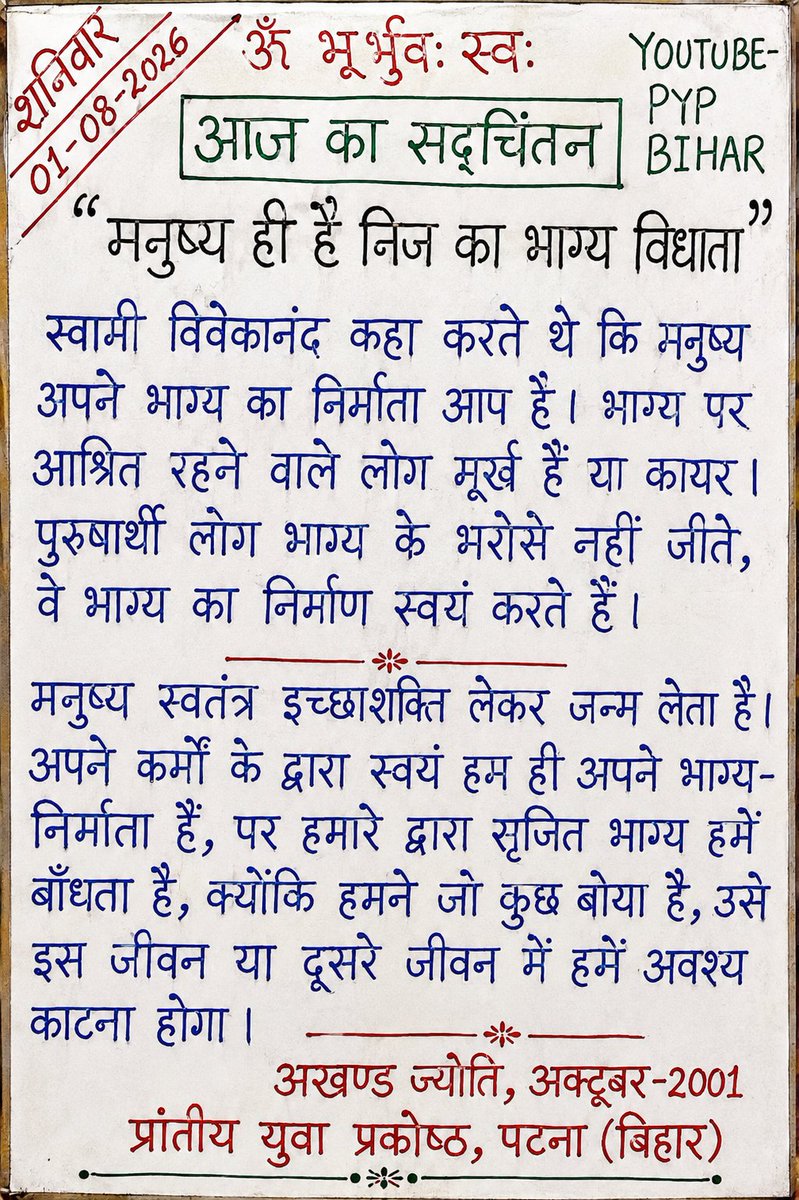 शनिवार
01-08-2026
ॐ भूर्भुवः स्वः
YOUTUBE-
PYP
BIHAR
आज का सद्चिंतन
“मनुष्य ही है निज का भाग्य विधाता”
स्वामी विवेकानंद कहा करते थे कि मनुष्य
अपने भाग्य का निर्माता आप है। भाग्य पर
आश्रित रहने वाले लोग मूर्ख हैं या कायर।
पुरुषार्थी लोग भाग्य के भरोसे नहीं जीते,
वे भाग्य का निर्माण स्वयं करते हैं।
मनुष्य स्वतंत्र इच्छाशक्ति लेकर जन्म लेता है।
अपने कर्मों के द्वारा स्वयं हम ही अपने भाग्य-
निर्माता हैं, पर हमारे द्वारा सृजित भाग्य हमें
बाँधता है, क्योंकि हमने जो कुछ बोया है, उसे
इस जीवन या दूसरे जीवन में हमें अवश्य
काटना होगा।
अखण्ड ज्योति, अक्टूबर-2001
प्रांतीय युवा प्रकोष्ठ, पटना (बिहार)